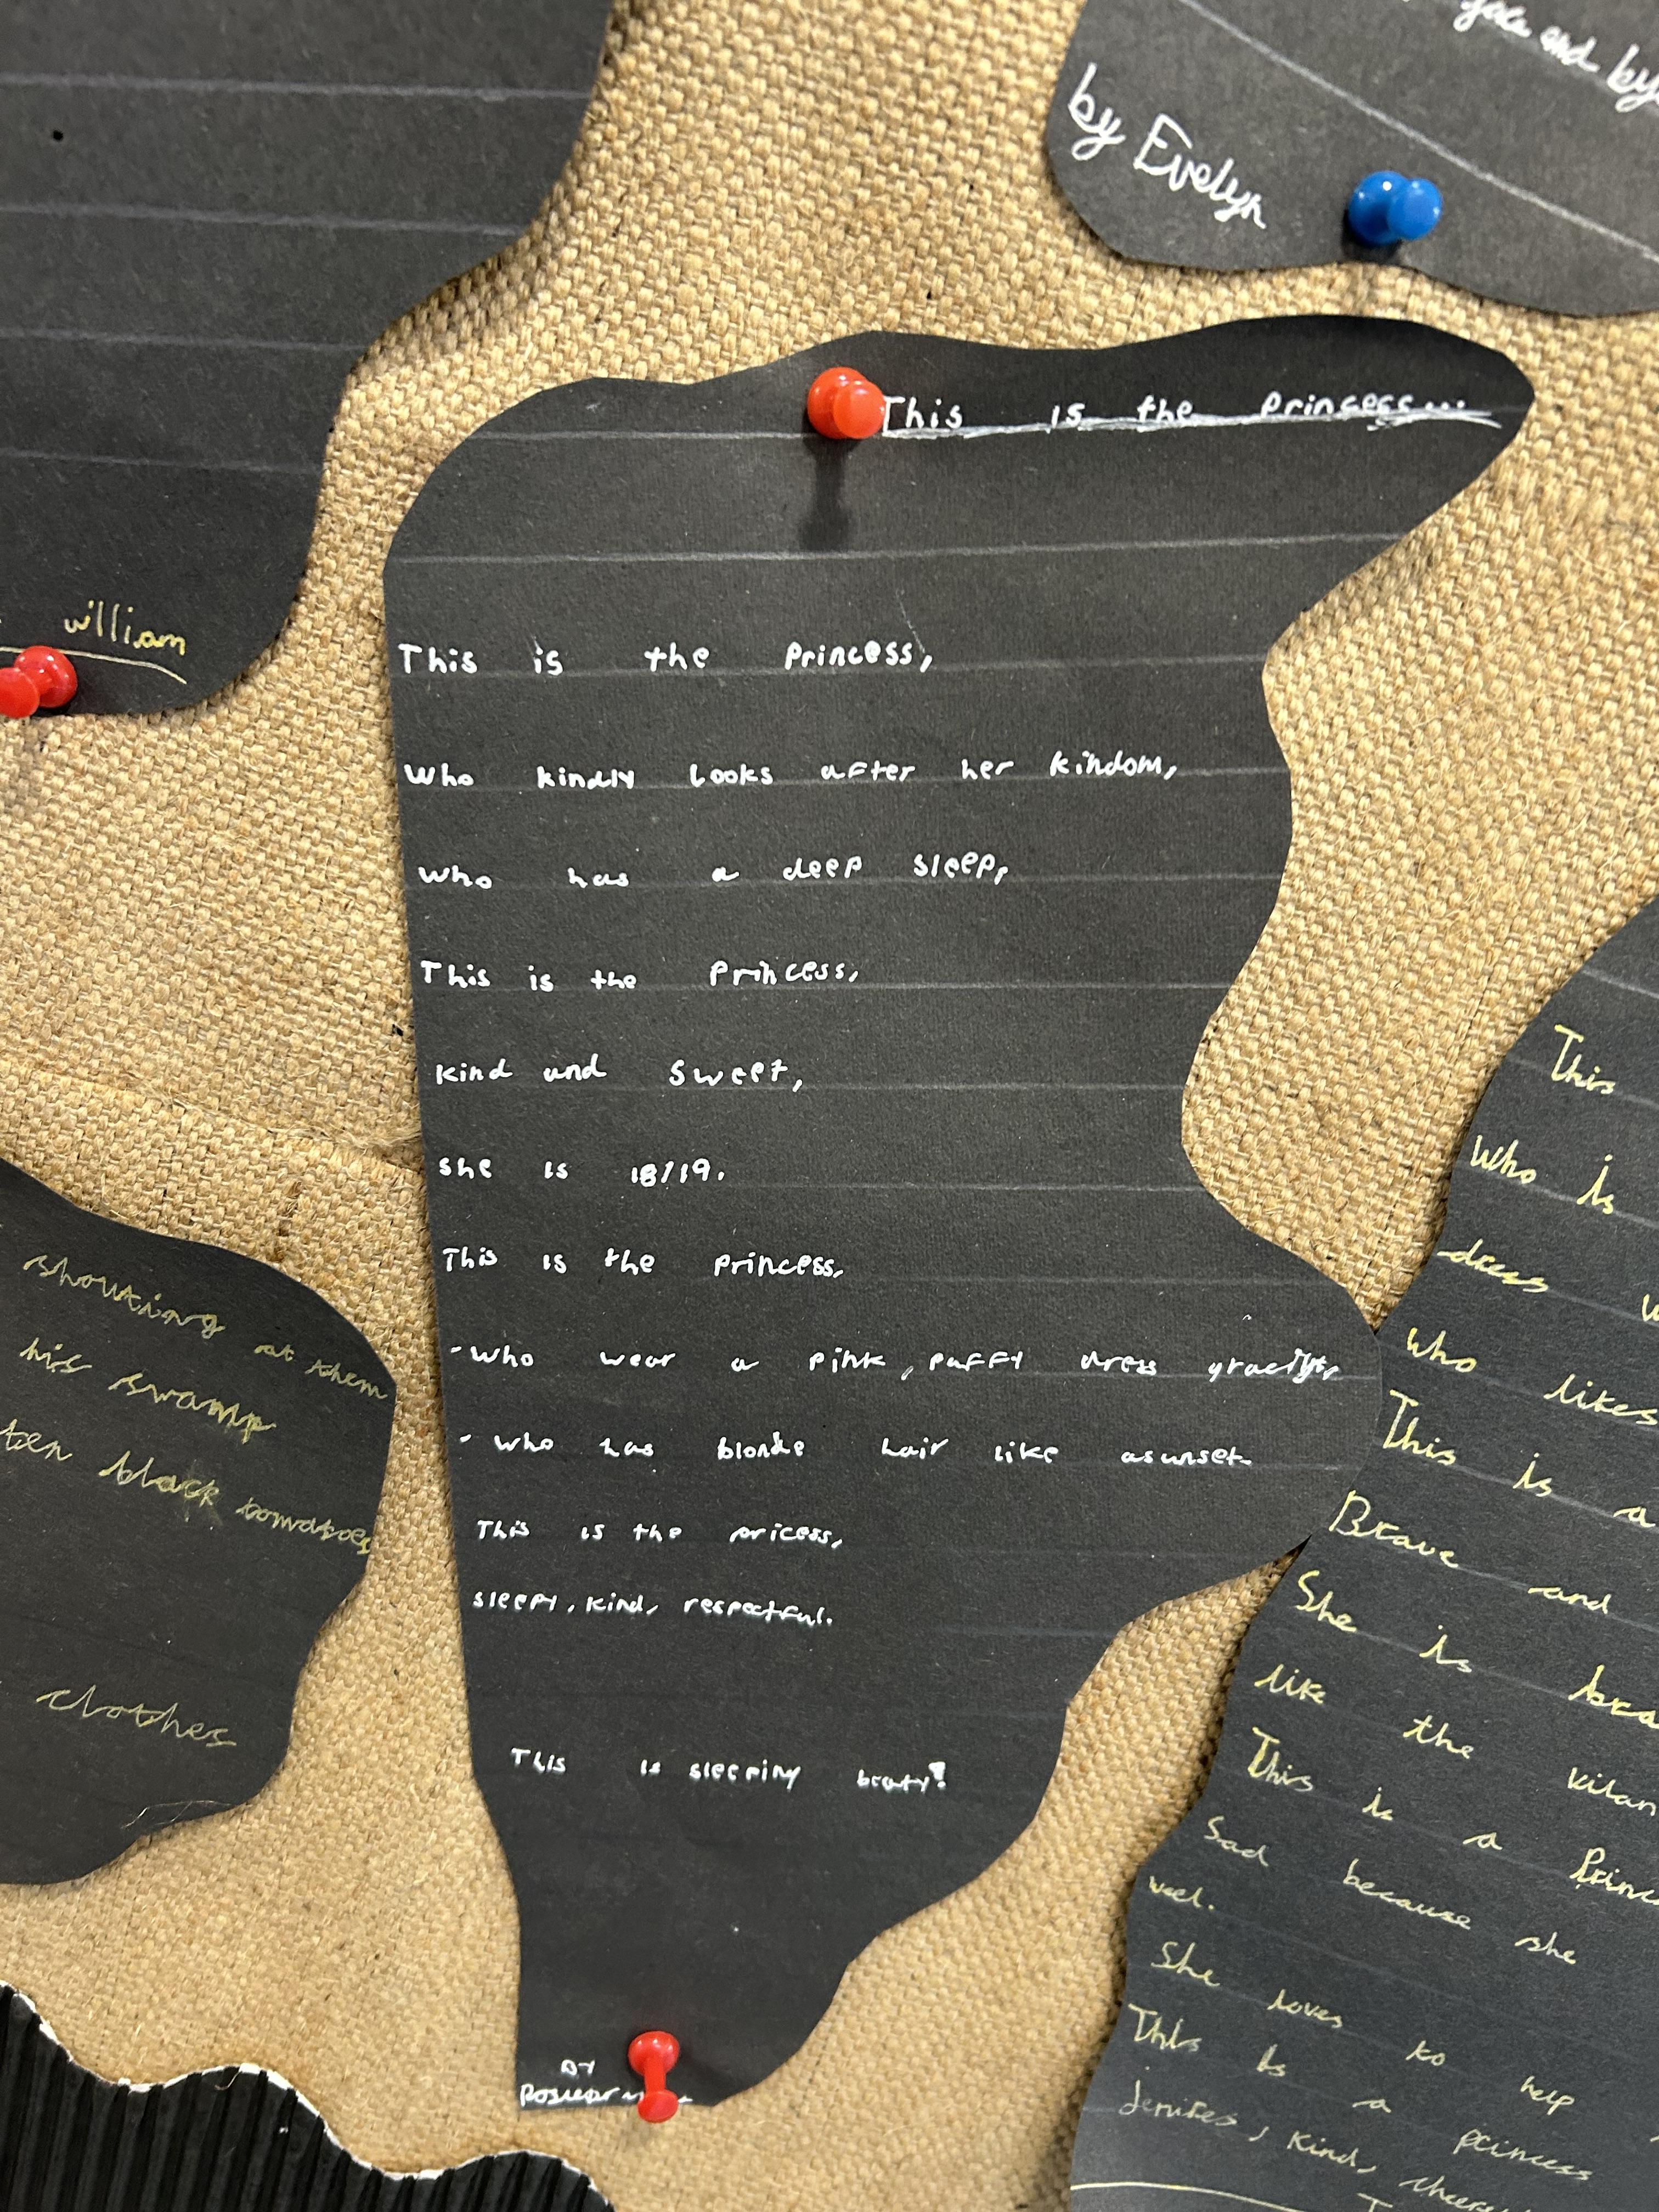 you and by
by Evelyn
william
This is the princess...
This is the princess,
Who kindly looks after her kindom,
Who has a deep sleep,
This is the princess,
kind and sweet,
she is 18/19.
This is the princess,
-Who wear a pink, puffy dress
- who has blonde hair like asunset
This is the pricess,
sleepy, kind, respectful.
This is sleeping beaty!
BY
shouting at them
his swamp
ten black tomatoes
clothes
This
Who is
dress w
who likes
This is a
Brave and
She is
like the
This is a Princ
Sad because she
weel.
She loves to help
This is a pcincess
kind,